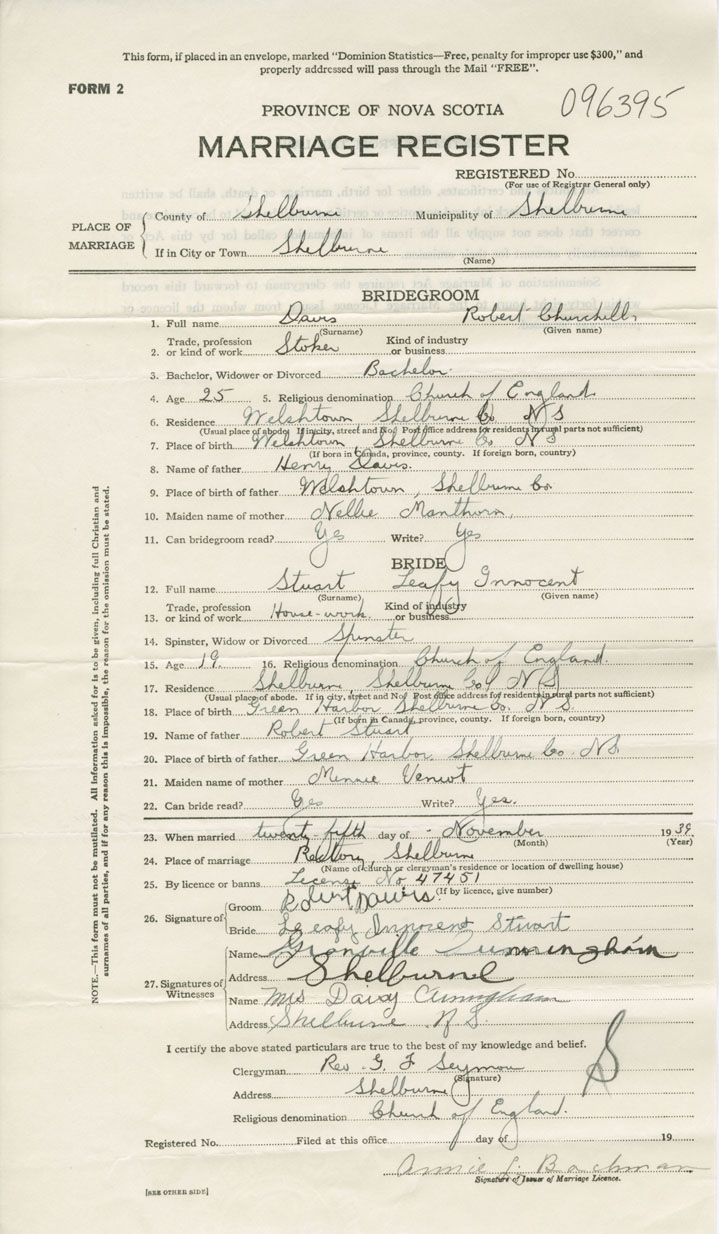 This form, if placed in an envelope, marked "Dominion Statistics—Free, penalty for improper use $300," and
properly addressed will pass through the Mail "FREE".
FORM 2
096395
PROVINCE OF NOVA SCOTIA
MARRIAGE REGISTER
REGISTERED No.
(For use of Registrar General only)
PLACE OF MARRIAGE
County of Shelburne Municipality of Shelburne
If in City or Town Shelburne
(Name)
BRIDEGROOM
1. Full name Davis Robert Churchill
(Surname) (Given name)
2. Trade, profession or kind of work Stoker Kind of industry or business
3. Bachelor, Widower or Divorced Bachelor
4. Age 25 5. Religious denomination Church of England
6. Residence Welshtown Shelburne Co N S
(Usual place of abode. If in city, street and No. Post office address for residents in rural parts not sufficient)
7. Place of birth Welshtown Shelburne Co N S
(If born in Canada, province, county. If foreign born, country)
8. Name of father Henry Davis.
9. Place of birth of father Welshtown, Shelburne Co
10. Maiden name of mother Nellie Manthorn
11. Can bridegroom read? Yes Write? Yes
BRIDE
12. Full name Stuart Leafy Innocent
(Surname) (Given name)
13. Trade, profession or kind of work House-work Kind of industry or business
14. Spinster, Widow or Divorced Spinster
15. Age 19 16. Religious denomination Church of England.
17. Residence Shelburne Shelburne Co N S
(Usual place of abode. If in city, street and No. Post office address for residents in rural parts not sufficient)
18. Place of birth Green Harbor Shelburne Co. N S.
(If born in Canada, province, county. If foreign born, country)
19. Name of father Robert Stuart
20. Place of birth of father Green Harbor. Shelburne Co. NS.
21. Maiden name of mother Minnie
22. Can bride read? Yes Write? Yes.
23. When married twenty-fifth day of November 1939
(Month) (Year)
24. Place of marriage Rectory, Shelburne
(Name of church or clergyman's residence or location of dwelling house)
25. By licence or banns License No 47451
(If by licence, give number)
26. Signature of
Groom Robert Davis.
Bride Leafy Innocent Stuart
27. Signatures of Witnesses
Name Granville Cunningham
Address Shelburne
Name Mrs Daisy Cunningham
Address Shelburne N.S.
I certify the above stated particulars are true to the best of my knowledge and belief.
Clergyman Rev. G. F Seymour
(Signature)
Address Shelburne
Religious denomination Church of England.
S
Registered No. Filed at this office day of 19
Annie L. Bachman
Signature of Issuer of Marriage Licence.
[SEE OTHER SIDE]
NOTE.—This form must not be mutilated. All information asked for is to be given, including full Christian and
surnames of all parties, and if for any reason this is impossible, the reason for the omission must be stated.